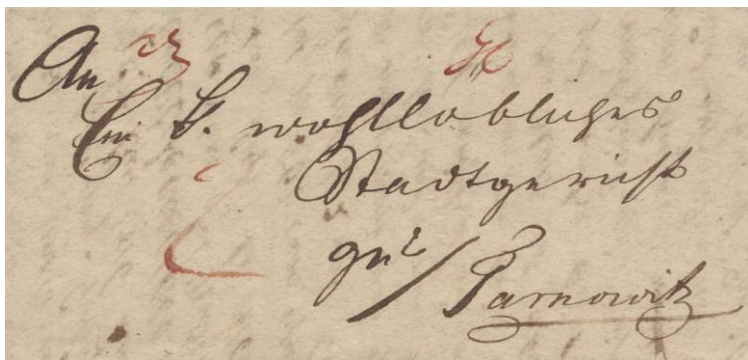 An
Ein K. wohllobliches
Stadtgericht
zu
Tarnowitz